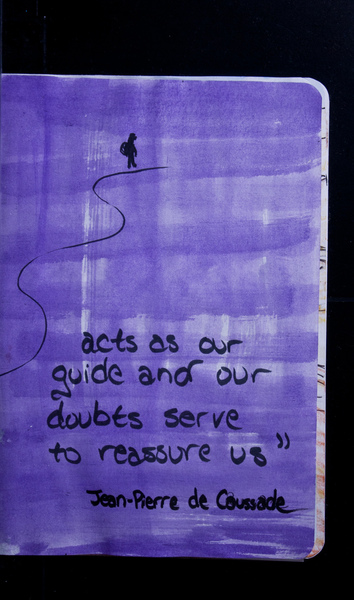 acts as our
guide and our
doubts serve
to reassure us"
Jean-Pierre de Caussade